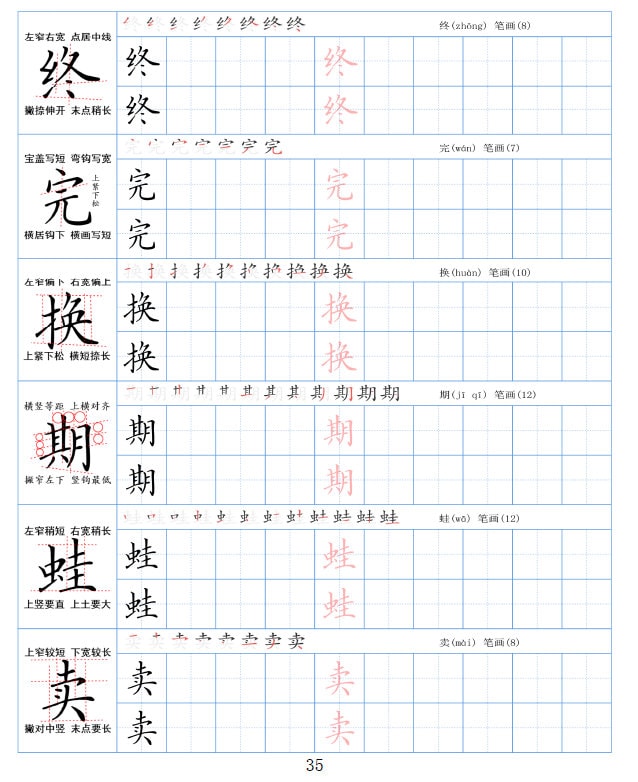 终(zhōng) 笔画(8)
左窄右宽 点居中线
终 终 终
撇捺伸开 末点稍长
终 终
完(wán) 笔画(7)
宝盖写短 弯钩写宽
上紧下松
完 完 完
横居钩下 横画写短
完 完
换(huàn) 笔画(10)
左窄偏下 右宽偏上
换 换 换
上紧下松 横短捺长
换 换
期(jī qī) 笔画(12)
横竖等距 上横对齐
期 期 期
撇窄左下 竖钩最低
期 期
蛙(wā) 笔画(12)
左窄稍短 右宽稍长
蛙 蛙 蛙
上竖要直 上土要大
蛙 蛙
卖(mài) 笔画(8)
上窄较短 下宽较长
卖 卖 卖
撇对中竖 末点要长
卖 卖
35